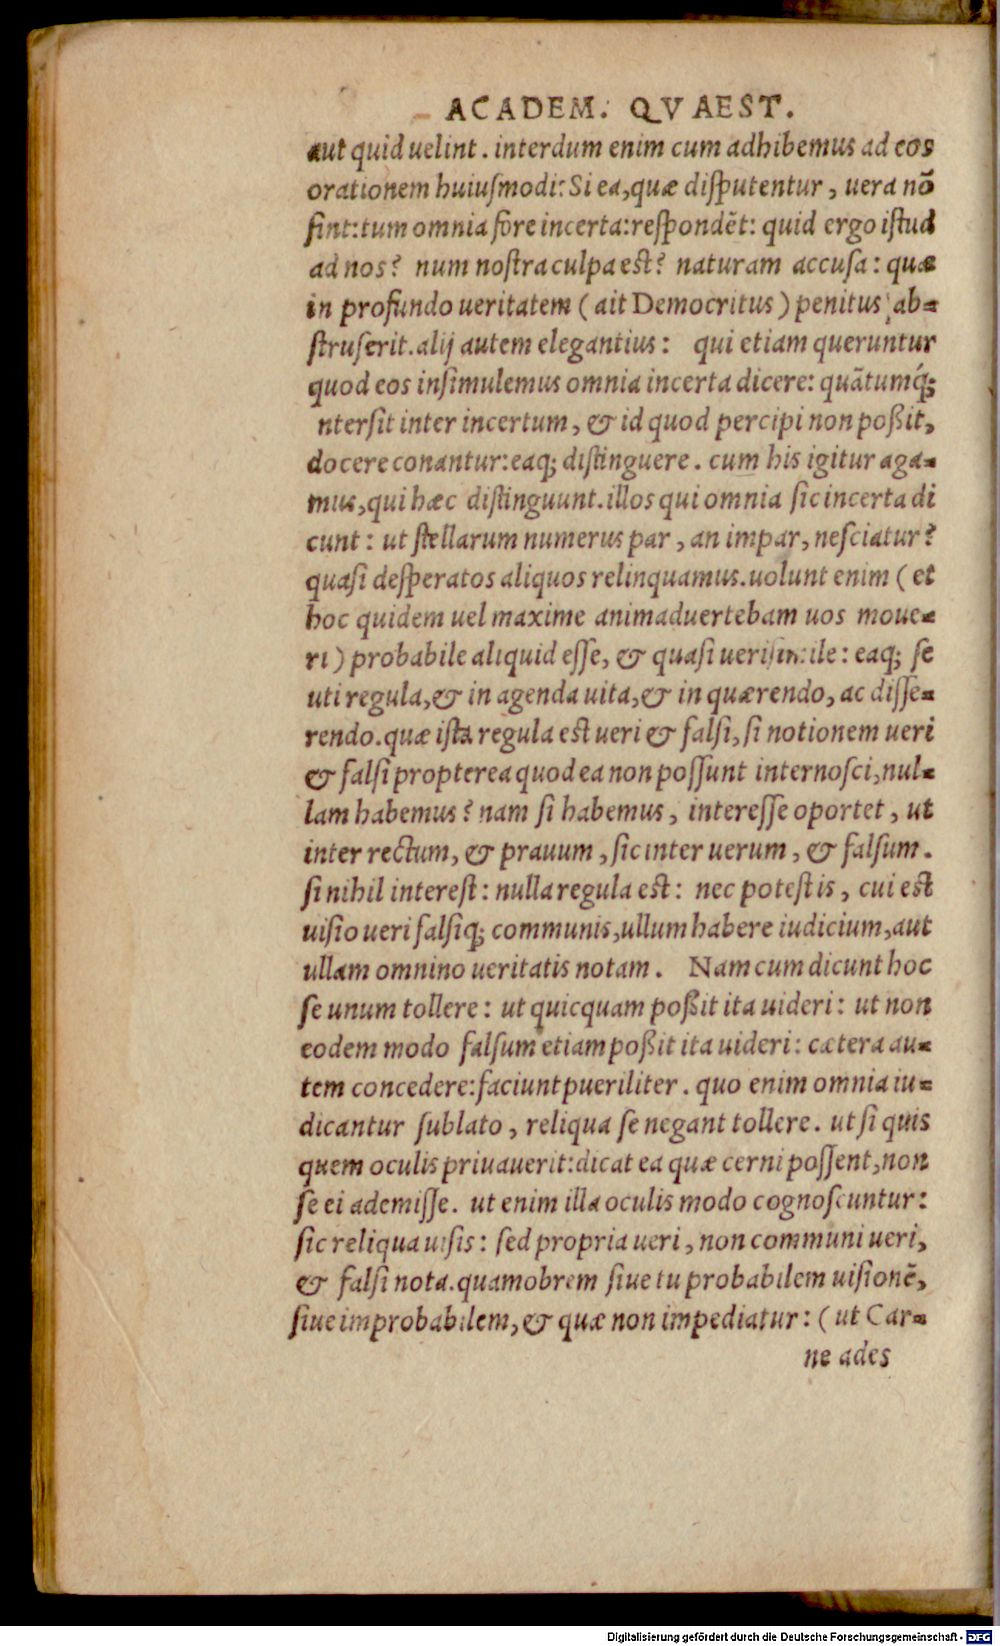 ACADEM. QVAEST.
aut quid uelint. interdum enim cum adhibemus ad eos
orationem huiuſmodi: Si ea, quæ diſputentur, uera nō
ſint: tum omnia fore incerta: reſpondēt: quid ergo iſtud
ad nos? num noſtra culpa eſt? naturam accuſa: quæ
in profundo ueritatem (ait Democritus) penitus ab-
ſtruſerit. alij autem elegantius: qui etiam queruntur
quod eos inſimulemus omnia incerta dicere: quātumq́;
nterſit inter incertum, & id quod percipi non poßit,
docere conantur: eaq; diſtinguere. cum his igitur aga-
mus, qui hæc diſtinguunt. illos qui omnia ſic incerta di
cunt: ut ſtellarum numerus par, an impar, neſciatur?
quaſi deſperatos aliquos relinquamus. uolunt enim (et
hoc quidem uel maxime animaduertebam uos moue-
ri) probabile aliquid eſſe, & quaſi ueriſimile: eaq; ſe
uti regula, & in agenda uita, & in quærendo, ac diſſe-
rendo. quæ iſta regula eſt ueri & falſi, ſi notionem ueri
& falſi propterea quod ea non poſſunt internoſci, nul-
lam habemus? nam ſi habemus, intereſſe oportet, ut
inter rectum, & prauum, ſic inter uerum, & falſum.
ſi nihil intereſt: nulla regula eſt: nec poteſt is, cui eſt
uiſio ueri falſiq; communis, ullum habere iudicium, aut
ullam omnino ueritatis notam. Nam cum dicunt hoc
ſe unum tollere: ut quicquam poßit ita uideri: ut non
eodem modo falſum etiam poßit ita uideri: cætera au-
tem concedere: faciunt pueriliter. quo enim omnia iu-
dicantur ſublato, reliqua ſe negant tollere. ut ſi quis
quem oculis priuauerit: dicat ea quæ cerni poſſent, non
ſe ei ademiſſe. ut enim illa oculis modo cognoſcuntur:
ſic reliqua uiſis: ſed propria ueri, non communi ueri,
& falſi nota. quamobrem ſiue tu probabilem uiſionē,
ſiue improbabilem, & quæ non impediatur: (ut Car-
ne ades
Digitalisierung gefördert durch die Deutsche Forschungsgemeinschaft - DFG